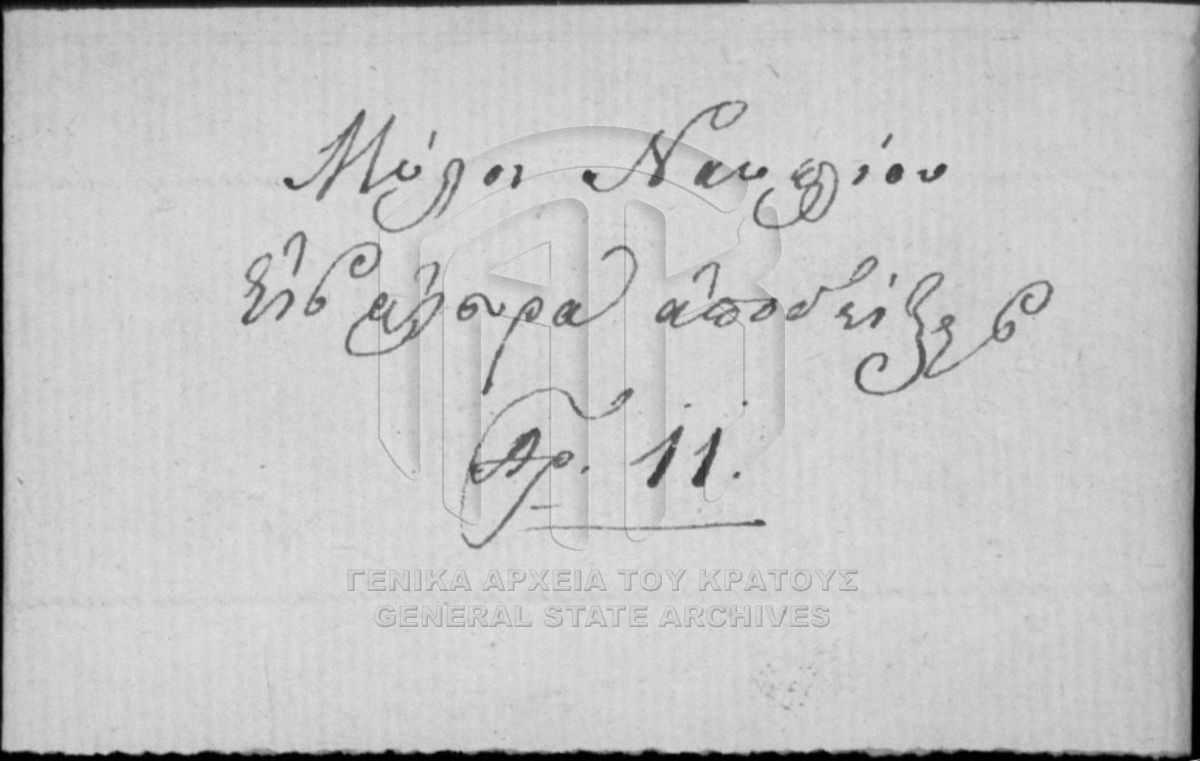 Μύλοι Ναυπλίου
Εἰς ἄγουρα ἀποδείξεις
Ἀρ. 11.
ΓΕΝΙΚΑ ΑΡΧΕΙΑ ΤΟΥ ΚΡΑΤΟΥΣ
GENERAL STATE ARCHIVES